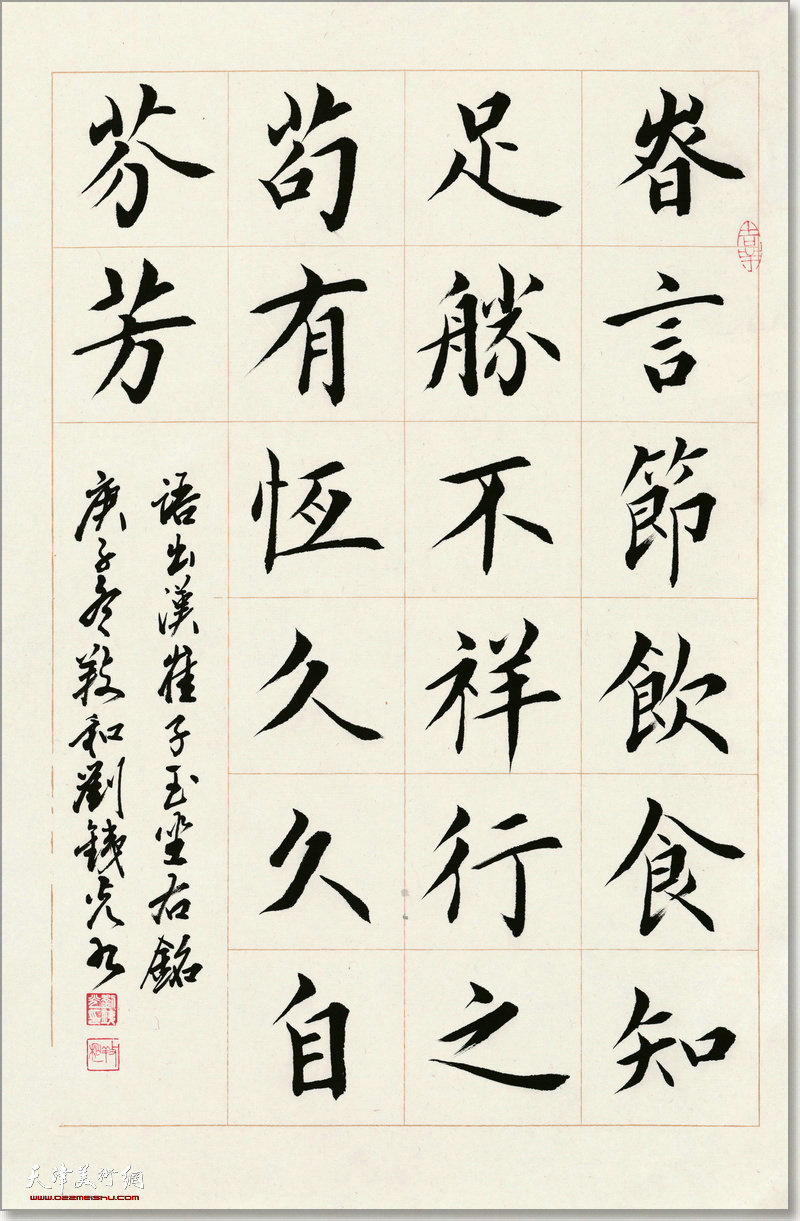 眘言節飲食知
足勝不祥行之
苟有恆久久自
芬芳
语出漢崔子玉坐右銘
庚子冬敬和劉鉄
天津美術網
www.022meishu.com